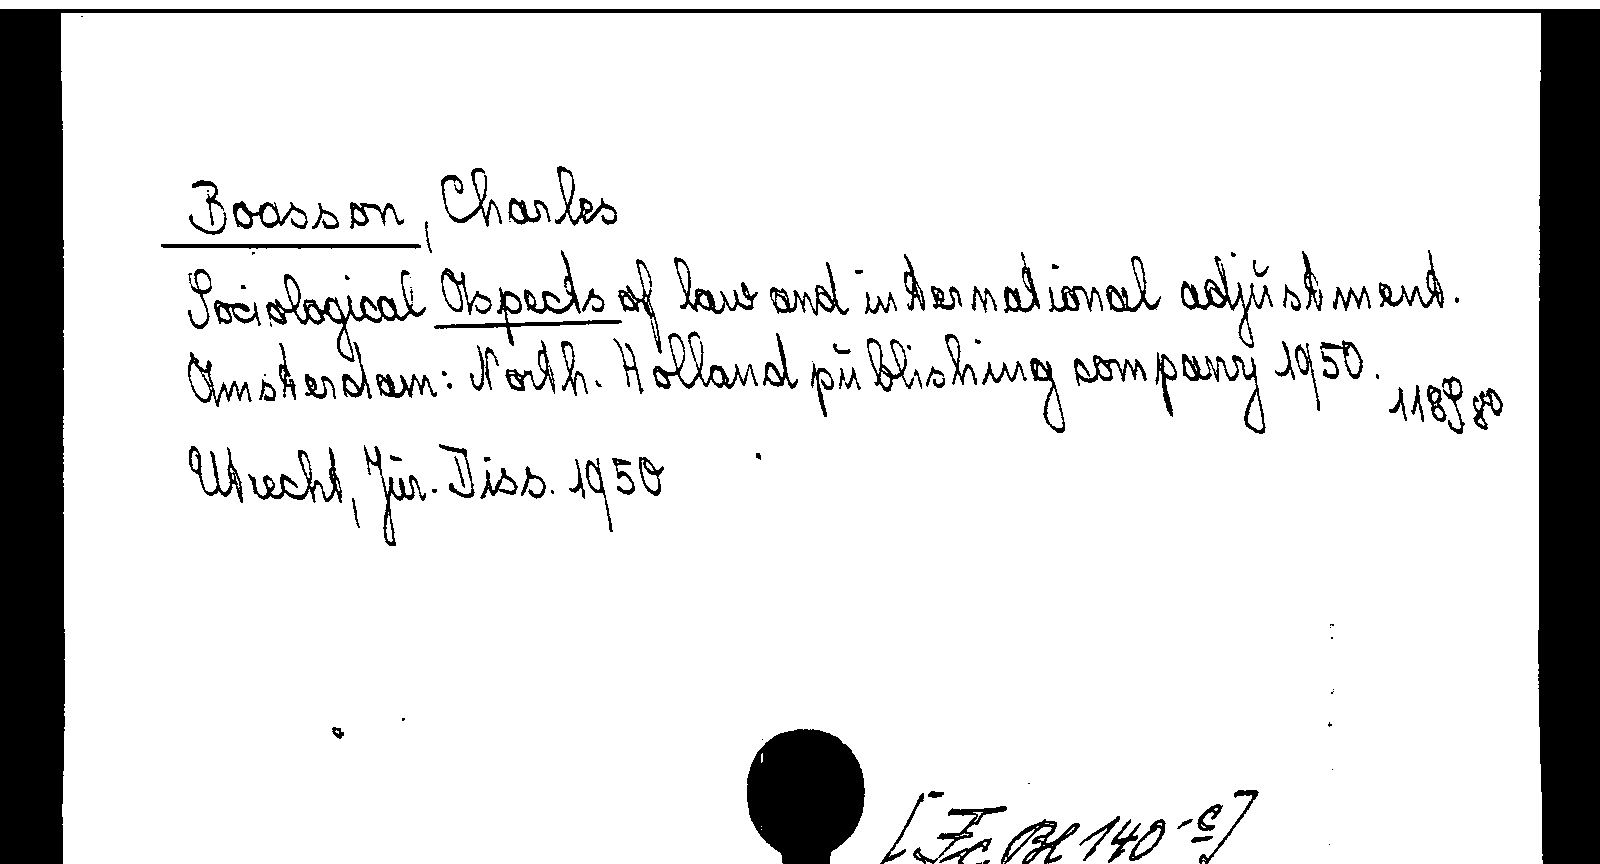 Boasson, Charles
Sociological Aspects of law and international adjustment.
Amsterdam: North. Holland publishing company 1950.
118 S 80
Utrecht, Jur. Diss. 1950
[Fc Bl 140-c]